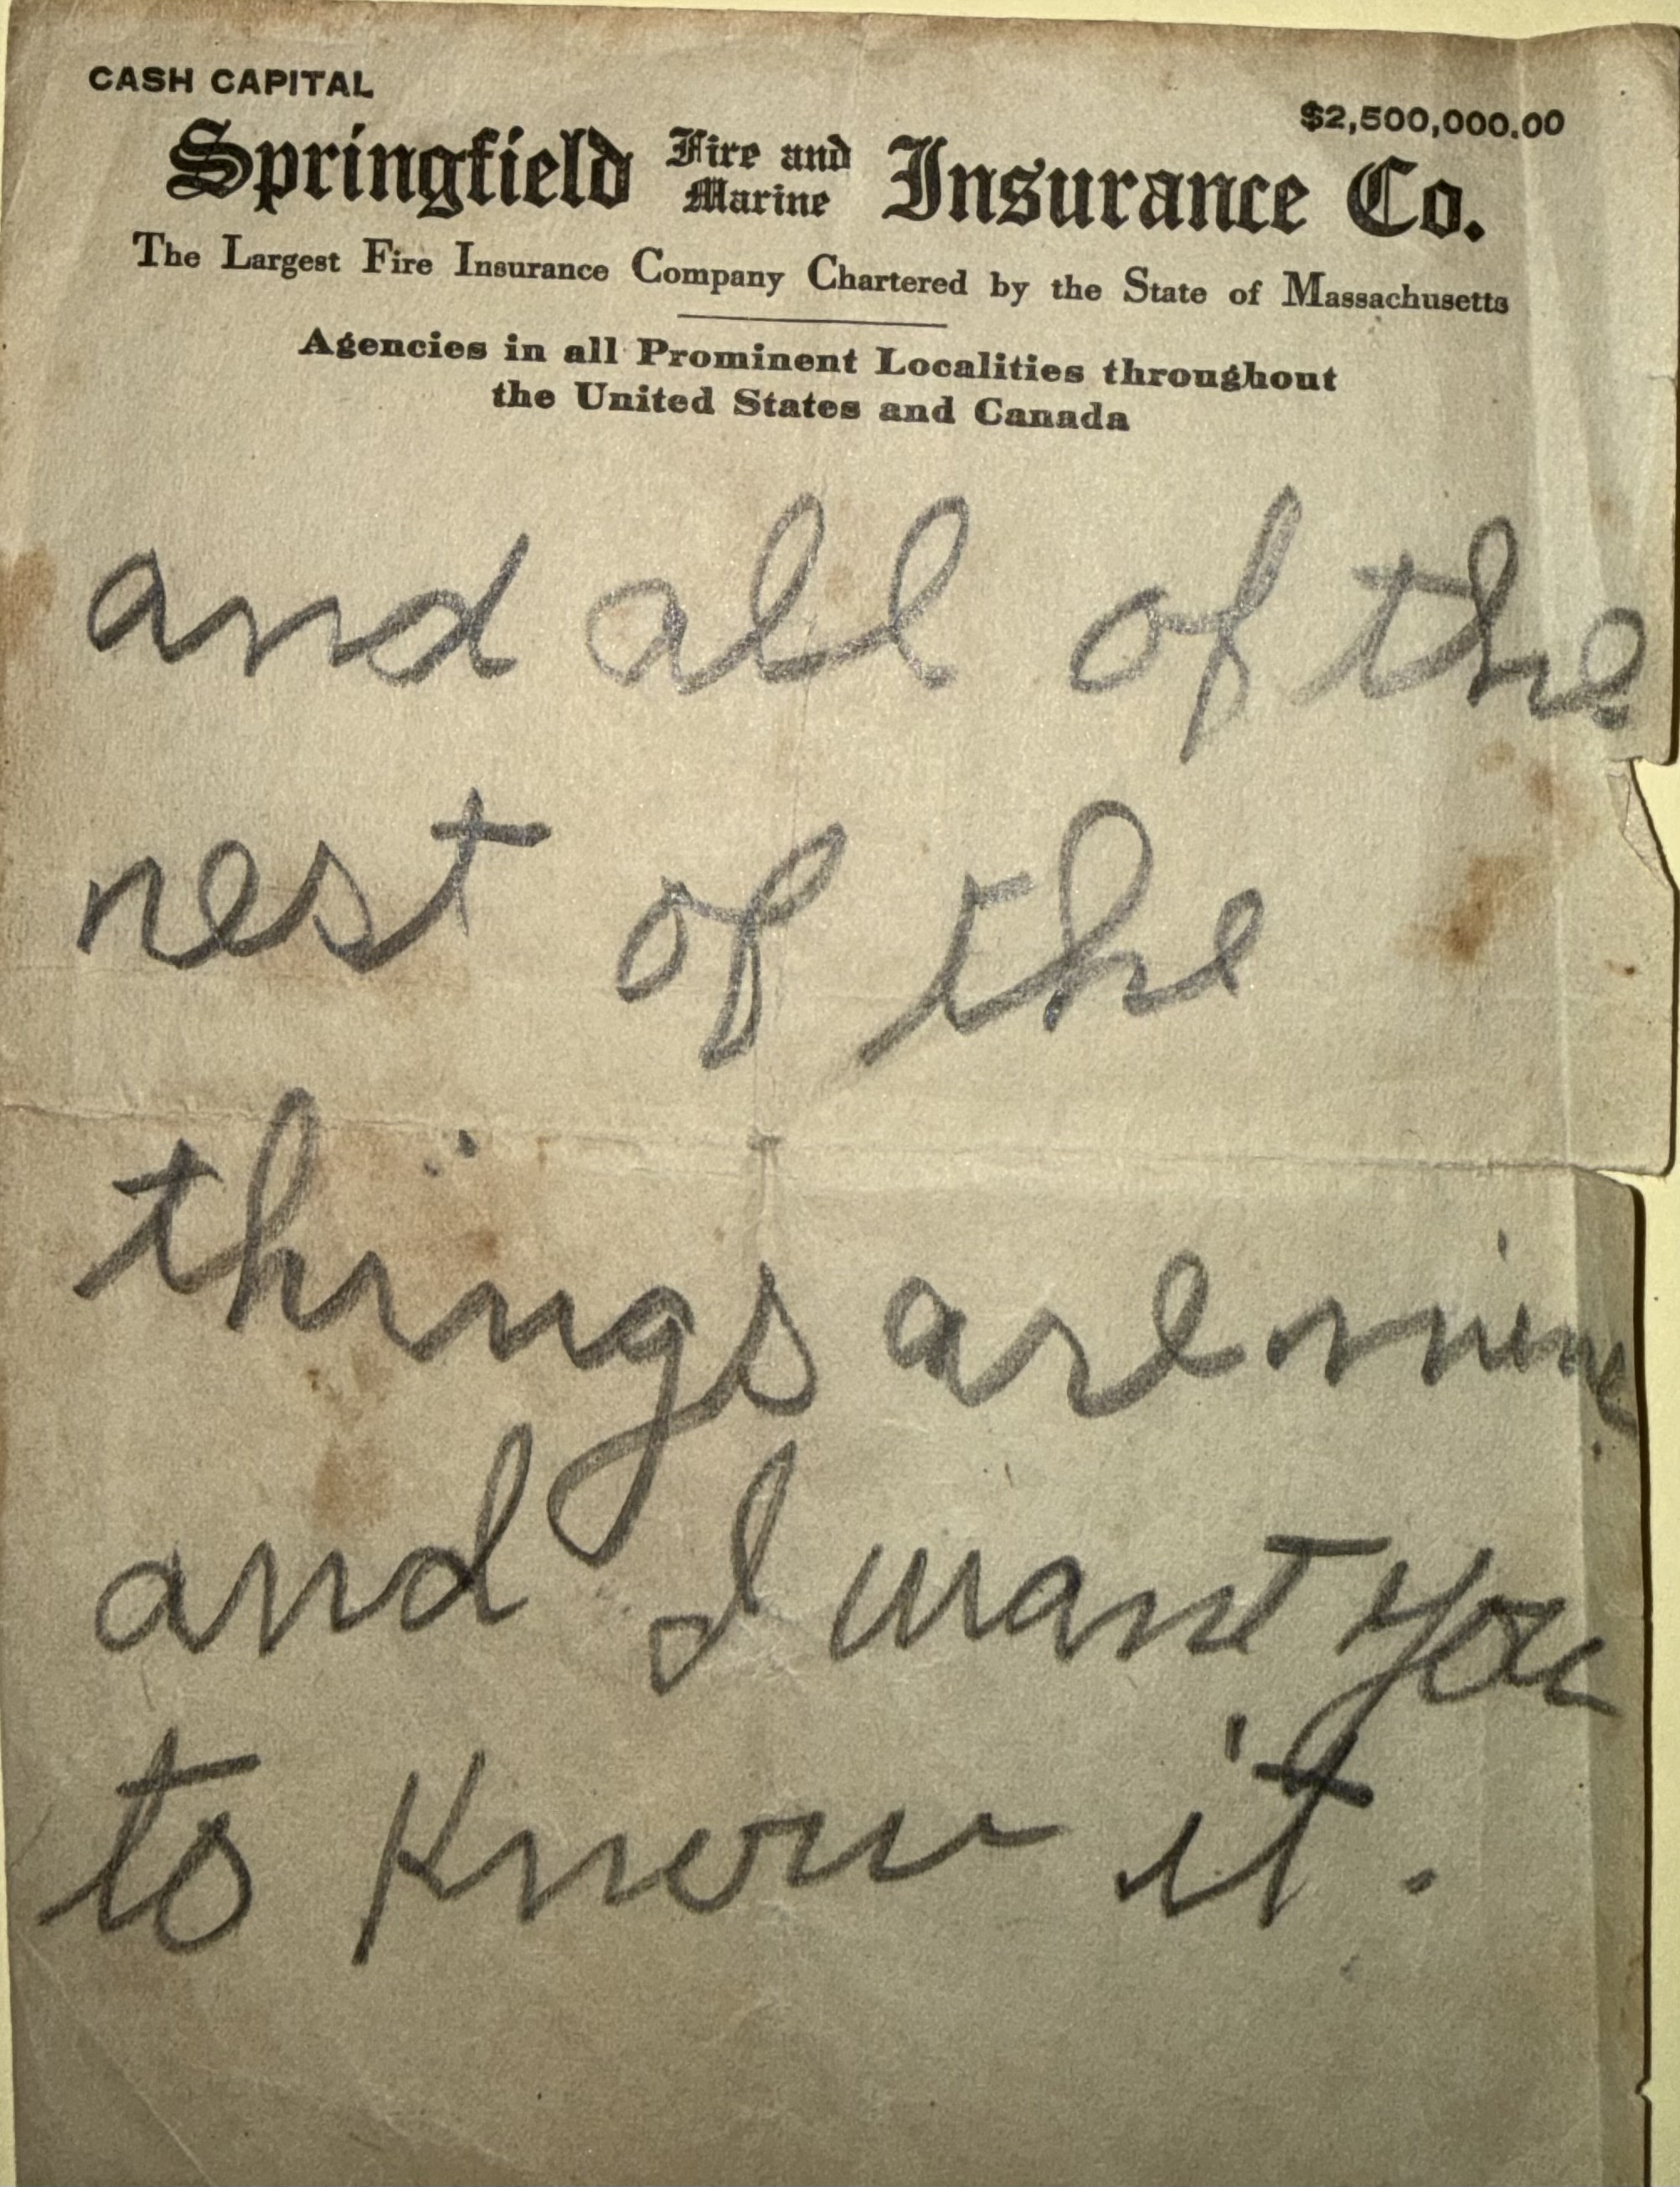 CASH CAPITAL $2,500,000.00
Springfield Fire and Marine Insurance Co.
The Largest Fire Insurance Company Chartered by the State of Massachusetts
Agencies in all Prominent Localities throughout
the United States and Canada
and all of the
rest of the
things are mine
and I want you
to know it.